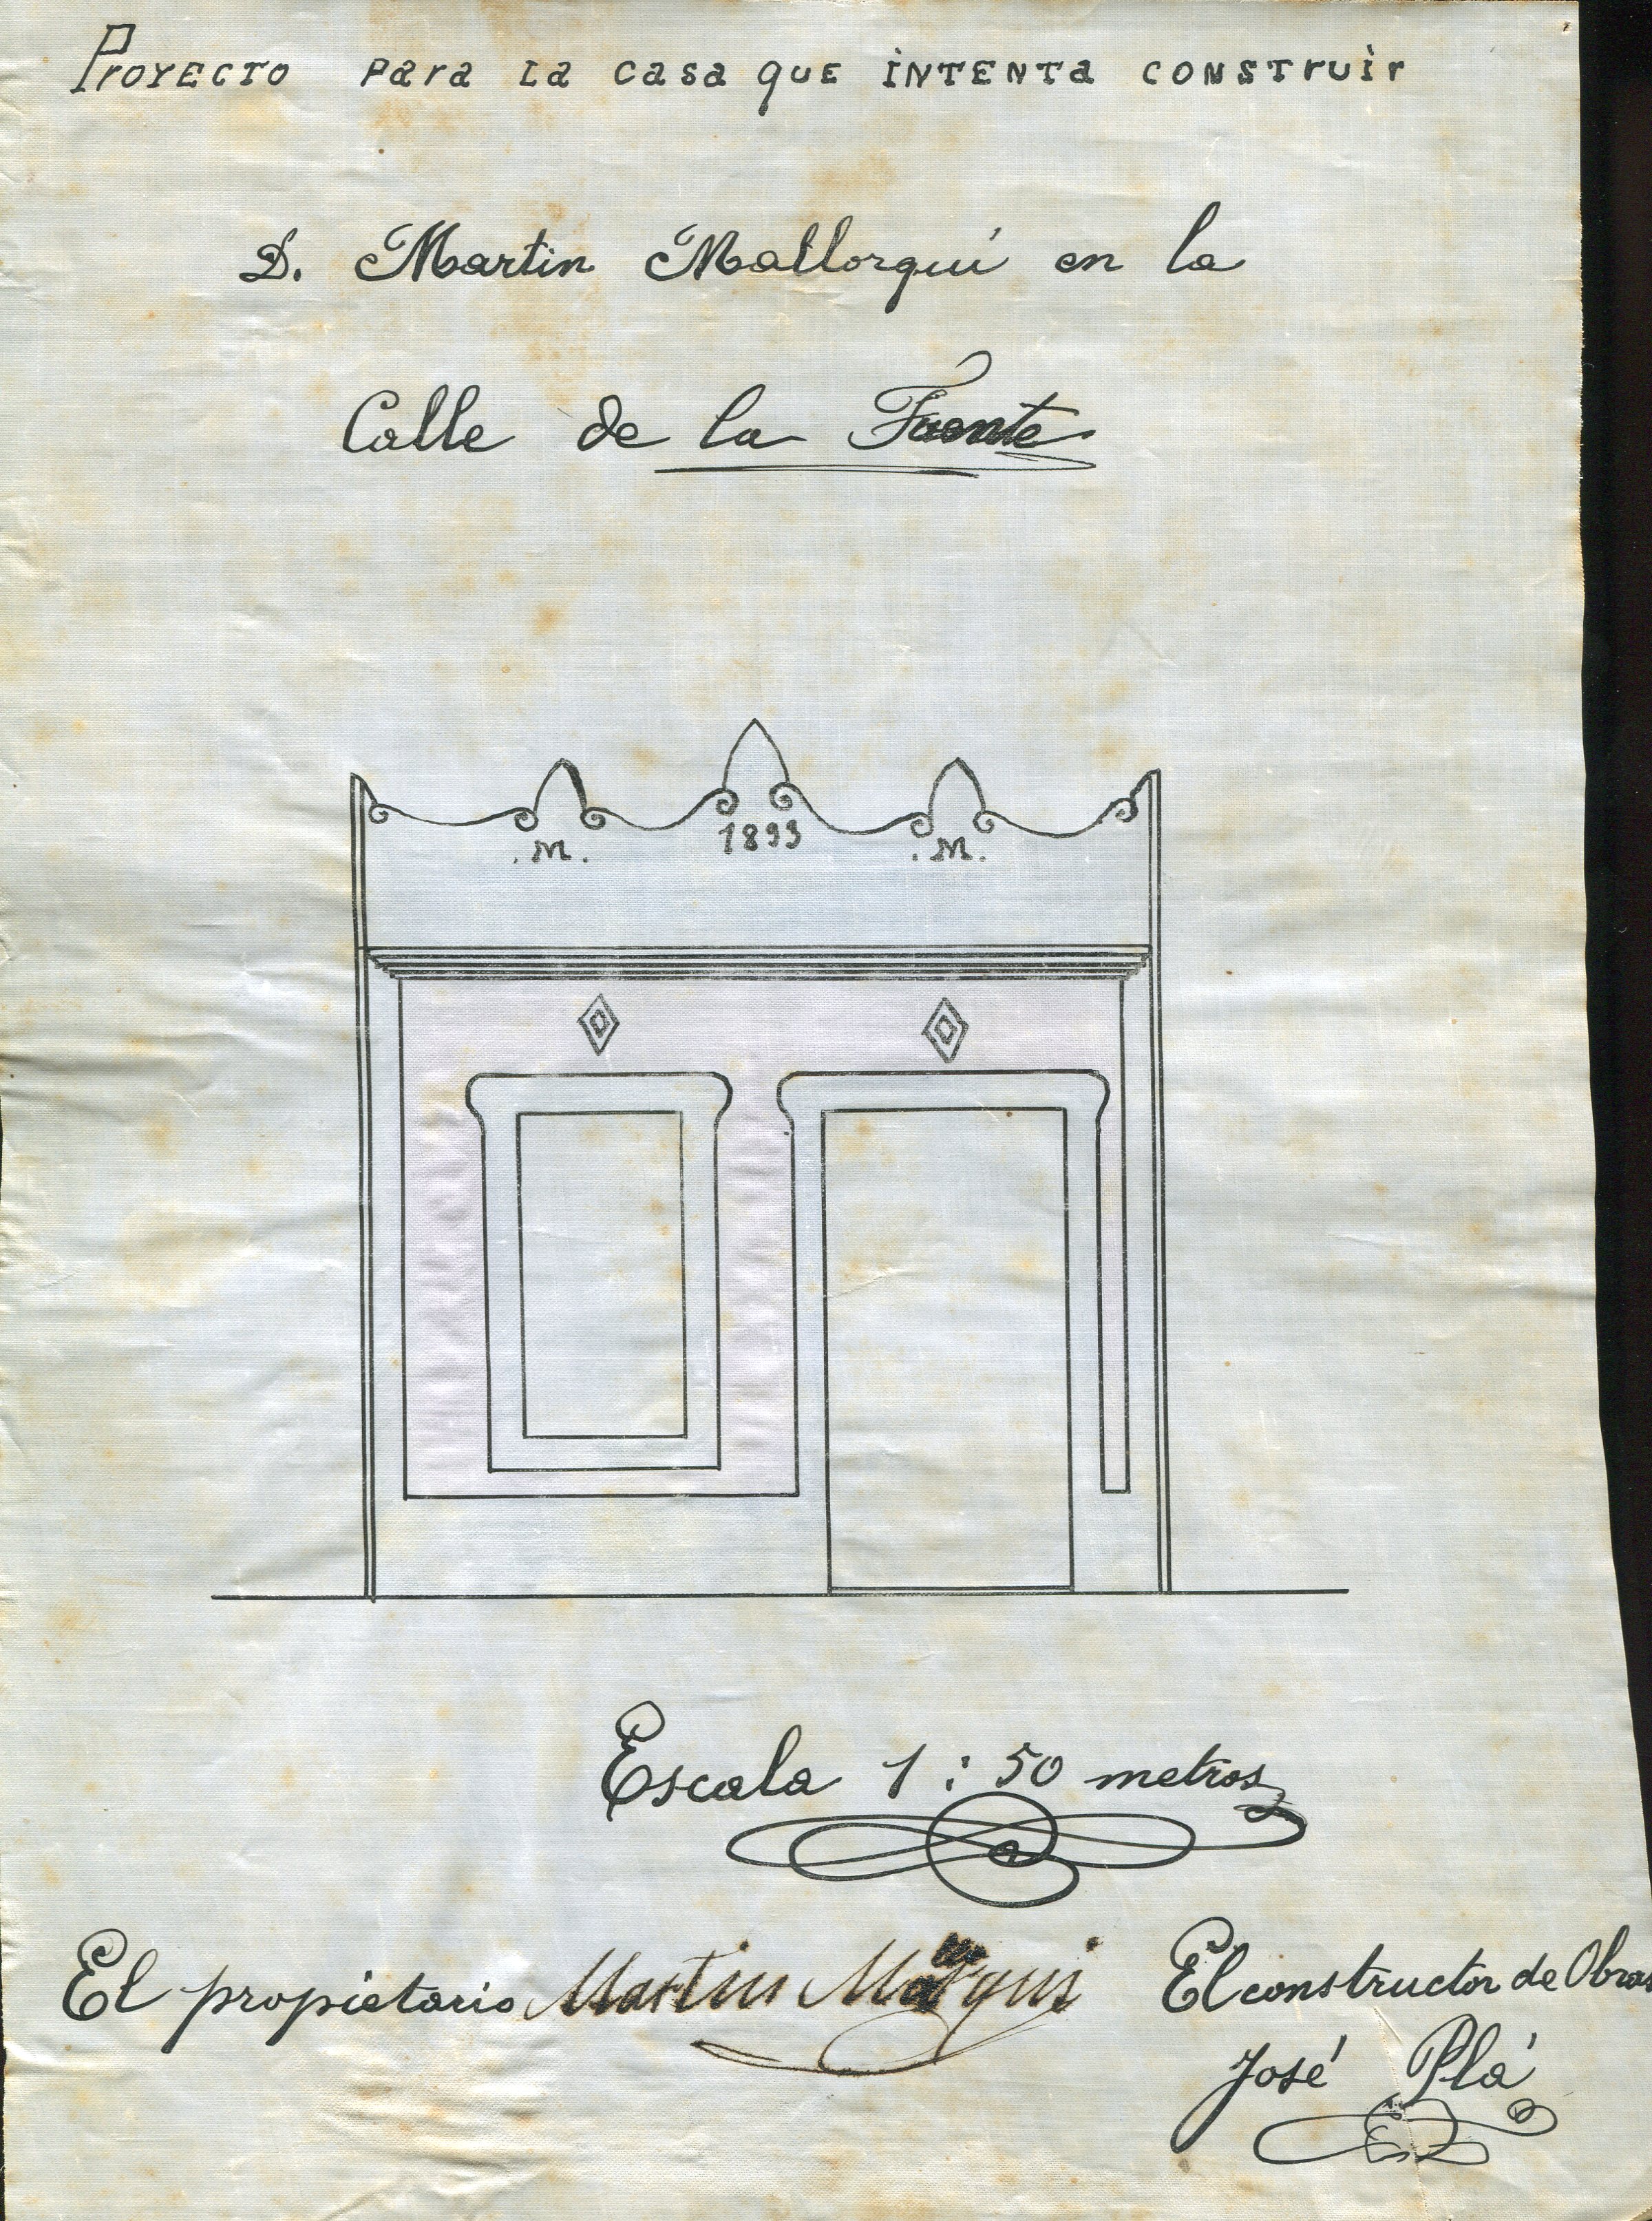 Proyecto para la casa que intenta construir
D. Martin Mallorquí en la
Calle de la Fuente
.M. 1899 .M.
Escala 1:50 metros
El propietario Martin Mallorqui
El constructor de Obras
José Plá